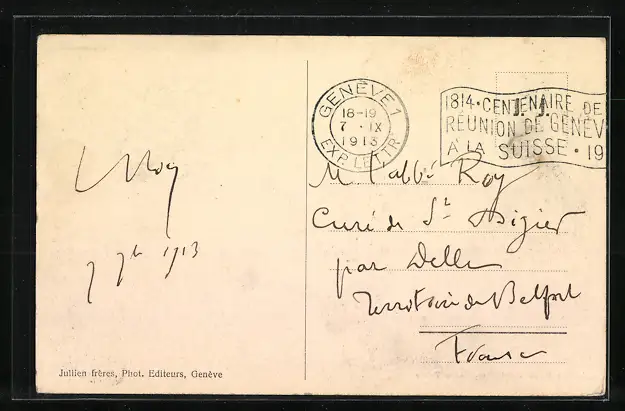 GENÈVE 1
18-19
7 · IX
1913
EXP. LETTR.
1814 · CENTENAIRE DE
RÉUNION DE GENÈV
A LA SUISSE · 19
M. l'abbé Roy
Curé de St Dizier
par Delle
Territoire de Belfort
France
Roy
7 7bre 1913
Jullien frères, Phot. Editeurs, Genève